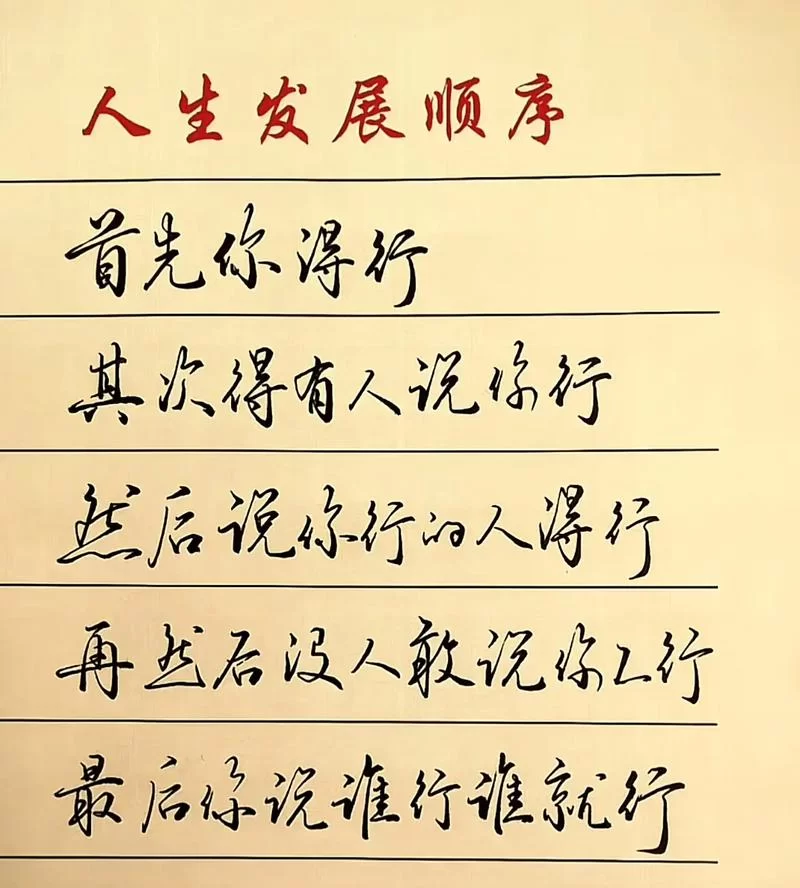 人生发展顺序
首先你得行
其次得有人说你行
然后说你行的人得行
再然后没人敢说你不行
最后你说谁行谁就行